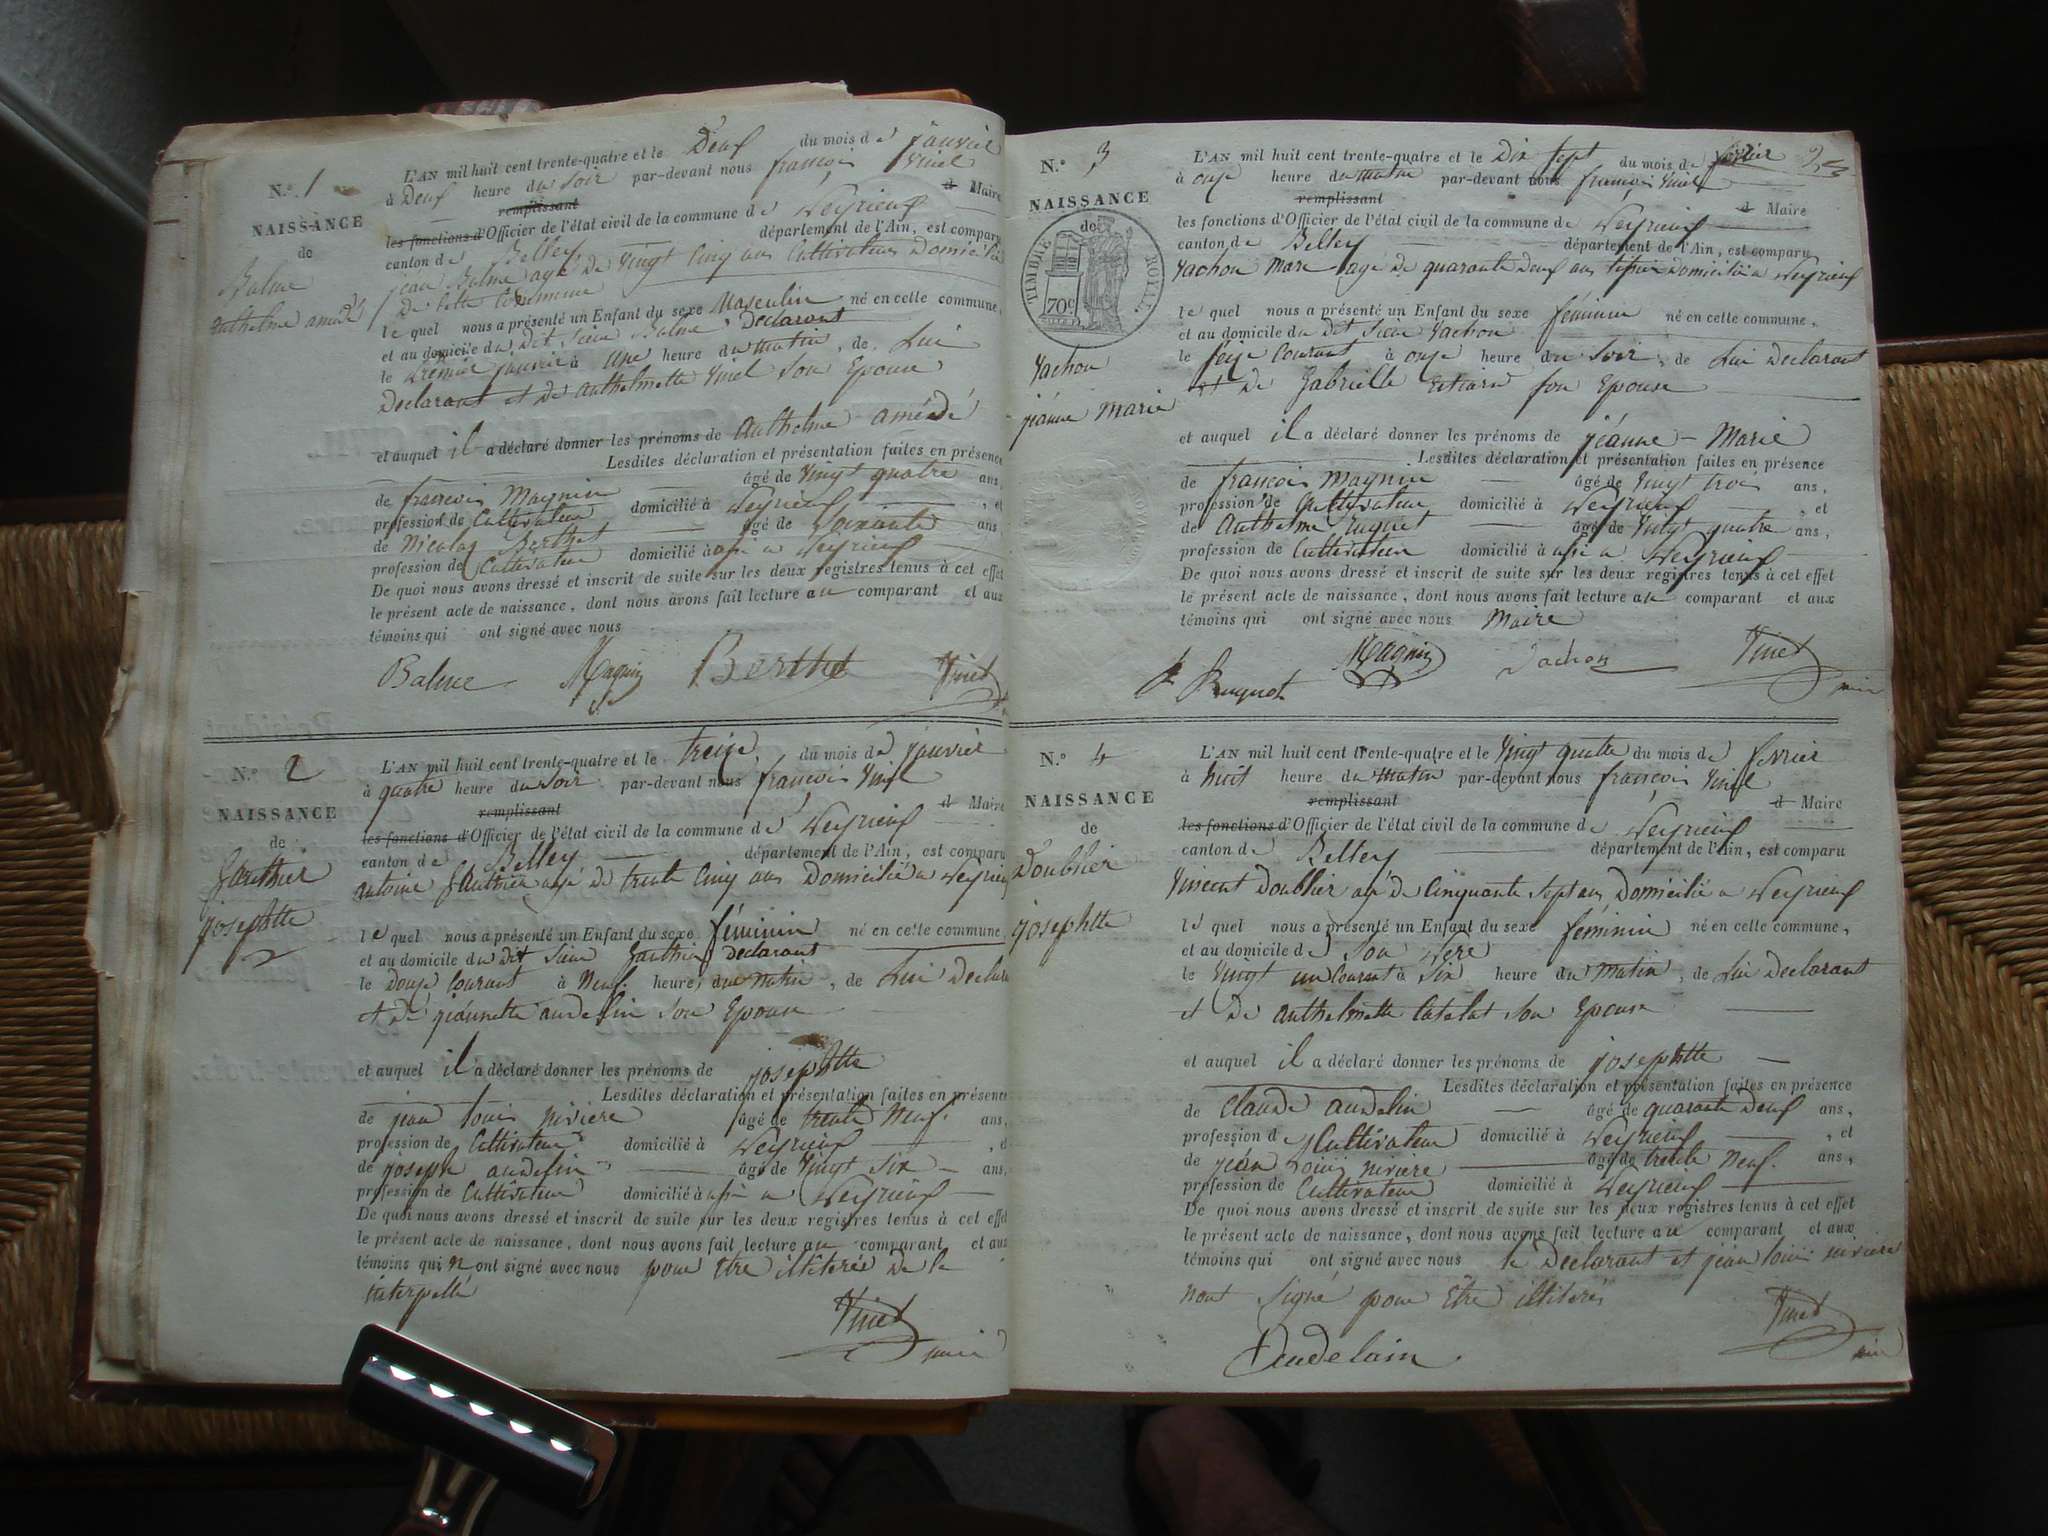 N.º 1
NAISSANCE
de
Balme
Anthelme amédé
L'AN mil huit cent trente-quatre et le Deux du mois de janvier
à Deux heure du soir par-devant nous françois Vinet
remplissant d Maire
les fonctions d'Officier de l'état civil de la commune de Veyrieux
canton de Belley département de l'Ain, est comparu
jean Balme agé de vingt cinq ans Cultivateur Domicilié
De cette Commune
le quel nous a présenté un Enfant du sexe Masculin né en cette commune,
et au domicile du dit sieur Balme declarant
le premier janvier à une heure du matin, de Lui
Declarant et de anthelmette Vinet son Epouse
et auquel il a déclaré donner les prénoms de Anthelme amédé
Lesdites déclaration et présentation faites en présence
de françois Magnin âgé de vingt quatre ans,
profession de Cultivateur domicilié à Veyrieux, et
de Nicolas Berthet âgé de soixante ans
profession de Cultivateur domicilié à aussi a Veyrieux
De quoi nous avons dressé et inscrit de suite sur les deux registres tenus à cet effet
le présent acte de naissance, dont nous avons fait lecture au comparant et aux
témoins qui ont signé avec nous
Balme Magnin Berthet Vinet
N.º 2
NAISSANCE
de
Gauthier
josephtte
L'AN mil huit cent trente-quatre et le treize du mois de janvier
à quatre heure du soir par-devant nous françois Vinet
remplissant d Maire
les fonctions d'Officier de l'état civil de la commune de Veyrieux
canton de Belley département de l'Ain, est comparu
antoine Gauthier agé de trente cinq ans Domicilié a Veyrieux
le quel nous a présenté un Enfant du sexe féminin né en cette commune,
et au domicile du dit sieur Gauthier declarant
le douze courant à Neuf heure du matin, de Lui Declarant
et de jeannette audelin son Epouse
et auquel il a déclaré donner les prénoms de josephtte
Lesdites déclaration et présentation faites en présence
de jean Louis riviere âgé de trente Neuf ans,
profession de Cultivateur domicilié à Veyrieux
de joseph audelin âgé de vingt six ans,
profession de Cultivateur domicilié à aussi a Veyrieux
De quoi nous avons dressé et inscrit de suite sur les deux registres tenus à cet effet
le présent acte de naissance, dont nous avons fait lecture au comparant et aux
témoins qui n ont signé avec nous pour être illiteré de ce
interpellé
Vinet
mire
N.º 3
NAISSANCE
de
TIMBRE ROYAL
70c
Vachon
jeanne marie
2
L'AN mil huit cent trente-quatre et le Dix sept du mois de fevrier
à onze heure du matin par-devant nous françois Vinet
remplissant d Maire
les fonctions d'Officier de l'état civil de la commune de Veyrieux
canton de Belley département de l'Ain, est comparu
Vachon Marc agé de quarante deux ans Domicilié a Veyrieux
le quel nous a présenté un Enfant du sexe féminin né en cette commune,
et au domicile du dit sieur Vachon
le seize courant à onze heure du soir, de Lui Declarant
et de Gabrielle son Epouse
et auquel il a déclaré donner les prénoms de jeanne - Marie
Lesdites déclaration et présentation faites en présence
de françois Magnin âgé de vingt trois ans,
profession de Cultivateur domicilié à Veyrieux, et
de Anthelme Ruguet âgé de vingt quatre ans,
profession de Cultivateur domicilié à aussi a Veyrieux
De quoi nous avons dressé et inscrit de suite sur les deux registres tenus à cet effet
le présent acte de naissance, dont nous avons fait lecture au comparant et aux
témoins qui ont signé avec nous Maire
Ruguet Magnin Vachon Vinet
mire
N.º 4
NAISSANCE
de
Doublier
josephtte
L'AN mil huit cent trente-quatre et le Vingt quatre du mois de fevrier
à huit heure du matin par-devant nous françois Vinet
remplissant d Maire
les fonctions d'Officier de l'état civil de la commune de Veyrieux
canton de Belley département de l'Ain, est comparu
Vincent Doublier agé de Cinquante sept ans Domicilié a Veyrieux
le quel nous a présenté un Enfant du sexe féminin né en cette commune,
et au domicile de son pere
le vingt un courant à six heure du matin, de Lui Declarant
et de anthelmette Catelat son Epouse
et auquel il a déclaré donner les prénoms de josephtte
Lesdites déclaration et présentation faites en présence
de Claude audelin âgé de quarante deux ans,
profession de Cultivateur domicilié à Veyrieux, et
de jean Louis riviere âgé de trente Neuf ans,
profession de Cultivateur domicilié à Veyrieux
De quoi nous avons dressé et inscrit de suite sur les deux registres tenus à cet effet
le présent acte de naissance, dont nous avons fait lecture au comparant et aux
témoins qui ont signé avec nous le Declarant et jean louis riviere
nont signé pour Etre illiterés
Vinet
Audelain mire